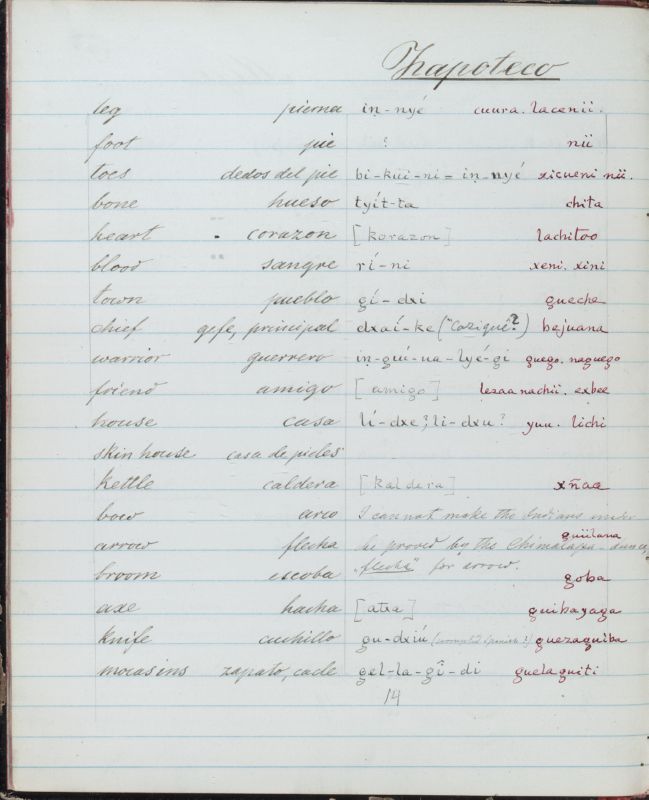 Zapoteco
leg pierna iṇ-nyé cuura. lacenii.
foot pie ? nii
toes dedos del pie bi-kuí-ni=iṇ-nyé xicueni nii.
bone hueso tyít-ta chita
heart corazon [korazon] lachitoo
blood sangre rí-ni xeni. xini
town pueblo gí-dxi gueche
chief gefe, principal dxaí-ke ("Cazique"?) bejuana
warrior guerrero iṇ-guí-na-lyé-gi guego. naguego
friend amigo [amigo] lezaa nachii. exbee
house casa lí-dxe; li-dxu? yuu. lichi
skin house casa de pieles
kettle caldera [kaldera] xñaa
bow arco I cannot make the Indians
guiilana
arrow flecha be proved by the Chimalapa-
broom escoba "flecha" for arrow. goba
axe hacha [atxa] guibayaga
knife cuchillo gu-dxíu (corrupted Spanish?) guezaguiba
mocasins zapato, cacle gel-la-gî-di guelaguiti
14